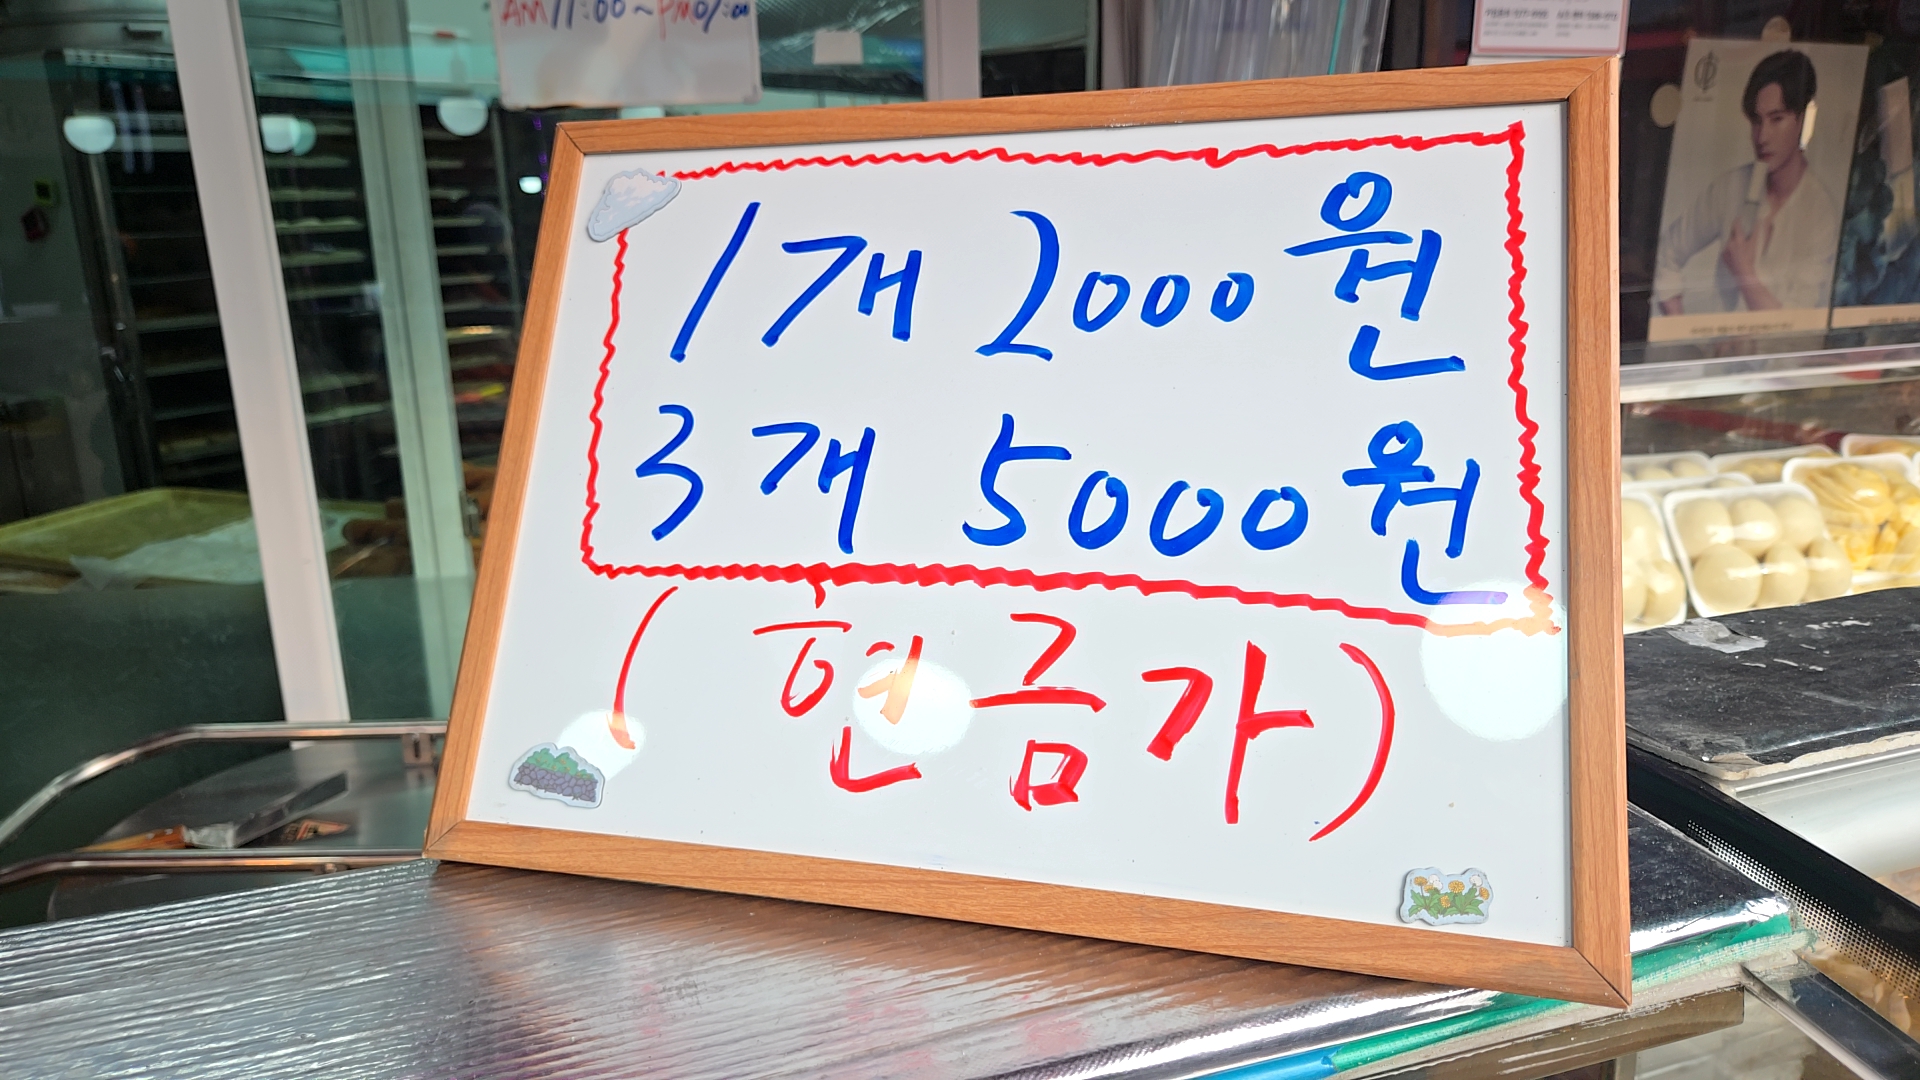 AM 11:00~PM 07:00
1개 2000원
3개 5000원
(현금가)